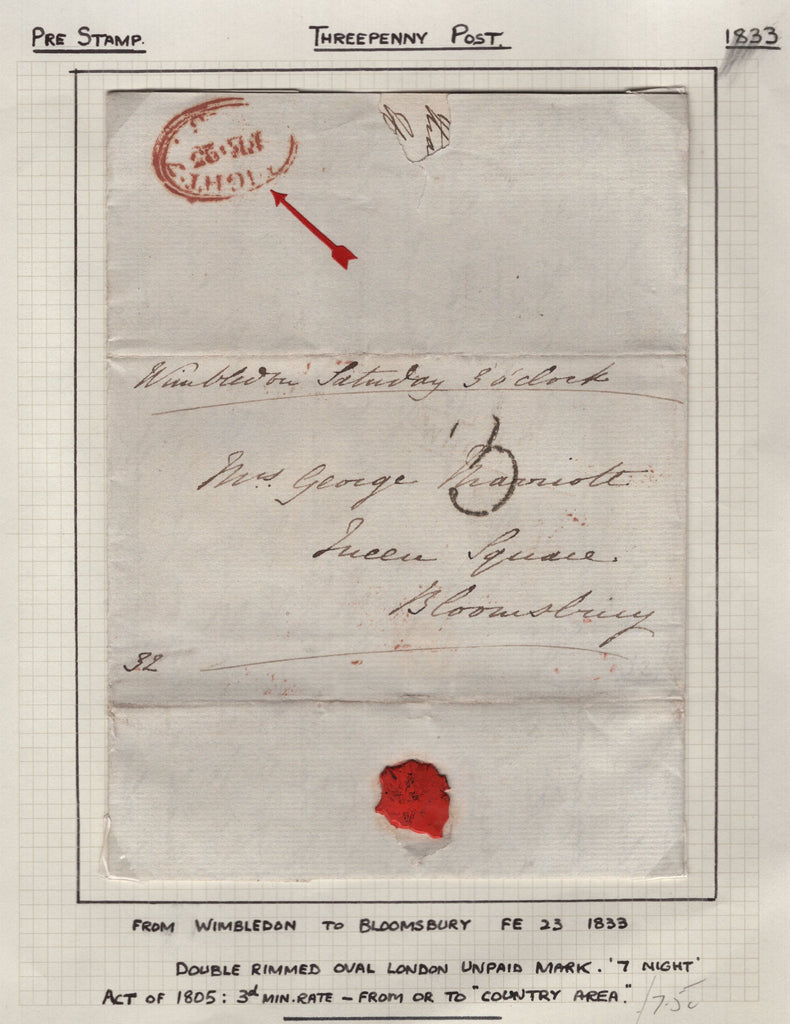 PRE STAMP.
THREEPENNY POST.
1833
NIGHT. 7
FE. 23
Wimbledon Saturday 3 o'clock
Mrs. George Marriott
3
Queen Square.
Bloomsbury
32
FROM WIMBLEDON TO BLOOMSBURY FE 23 1833
DOUBLE RIMMED OVAL LONDON UNPAID MARK. '7 NIGHT'
ACT OF 1805: 3d MIN. RATE – FROM OR TO "COUNTRY AREA."
17.50